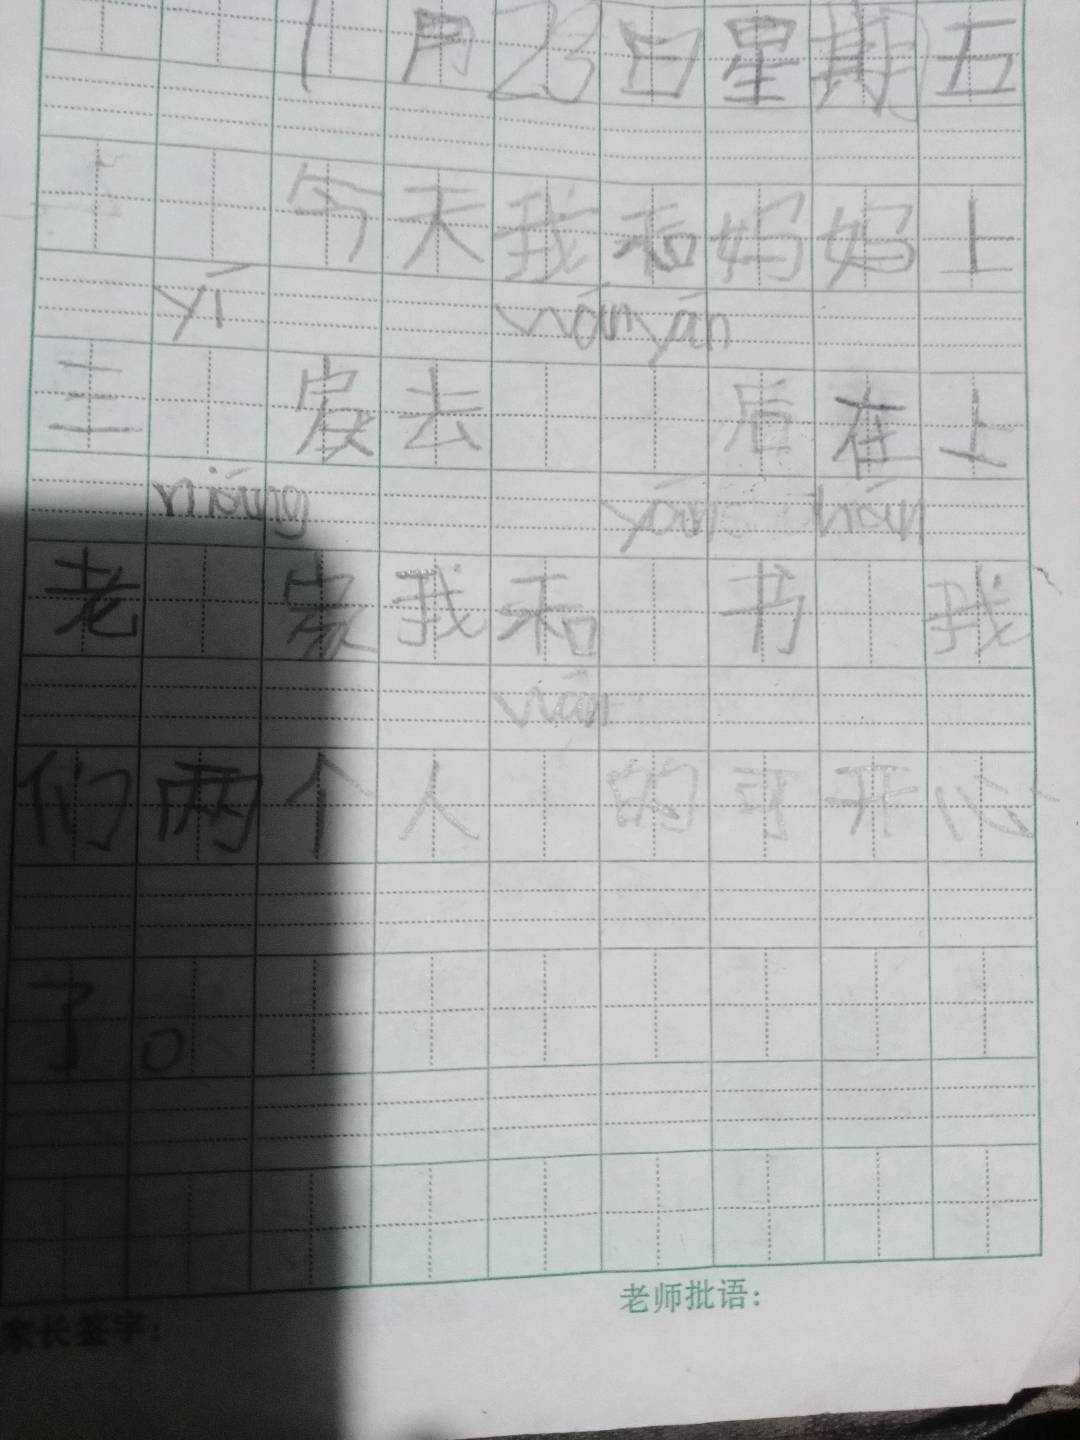 1月23日星期五
今天我和妈妈上
yī
三家去 后在上
老 家我和 书 我
们两个人 的可开心
了。
老师批语：
家长签字：